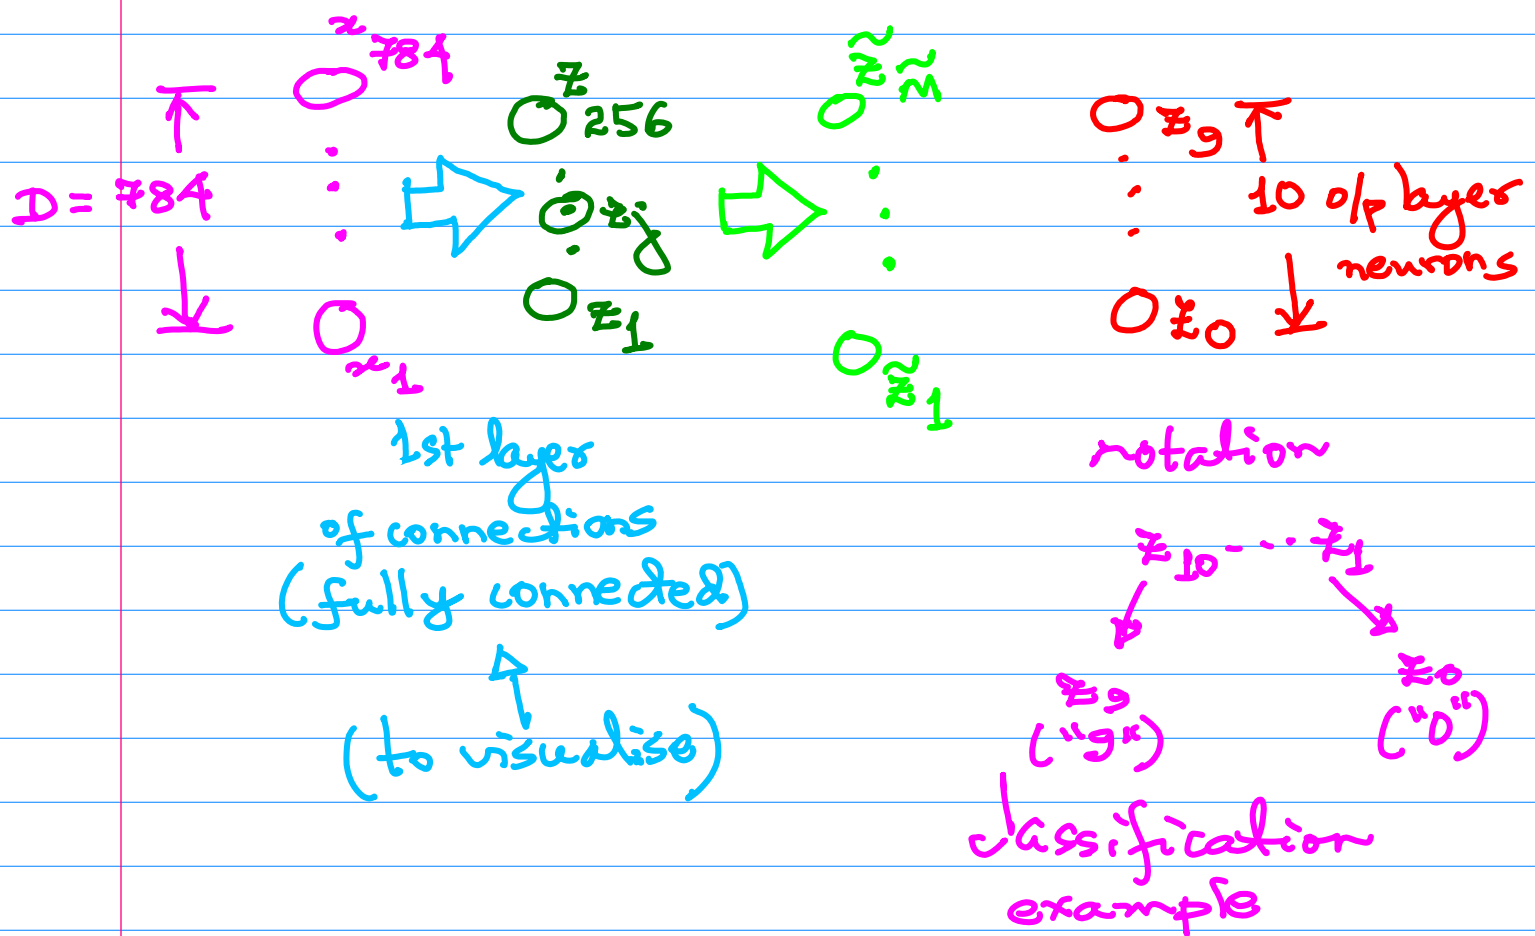 x 784
z 256
z̃ m̃
z 9
D = 784
z j
10 o/p layer
neurons
z 1
z 0
x 1
z̃ 1
1st layer
of connections
(fully connected)
(to visualise)
notation
z 10 - - · · - z 1
z 9
("9")
z 0
("0")
classification
example